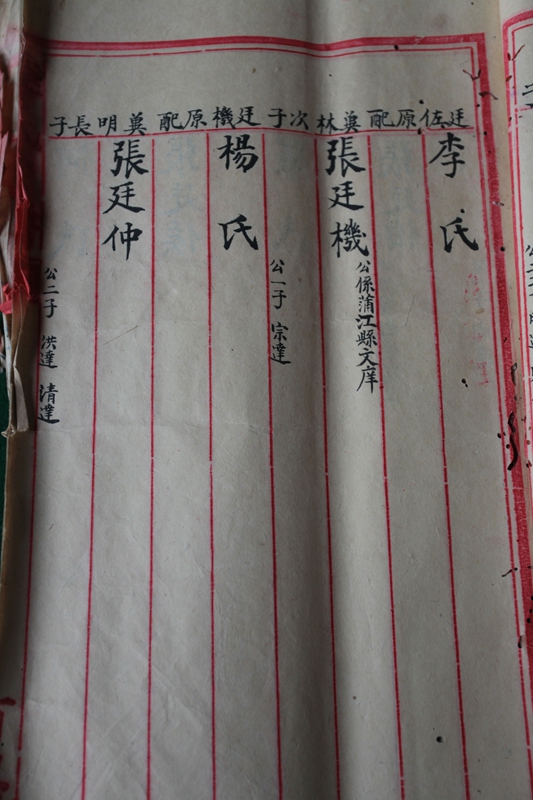 廷佐原配
李氏
奠林次子
張廷機
公係蒲江縣文庠
廷機原配
楊氏
公一子 宗達
奠明長子
張廷仲
公二子 洪達 清達